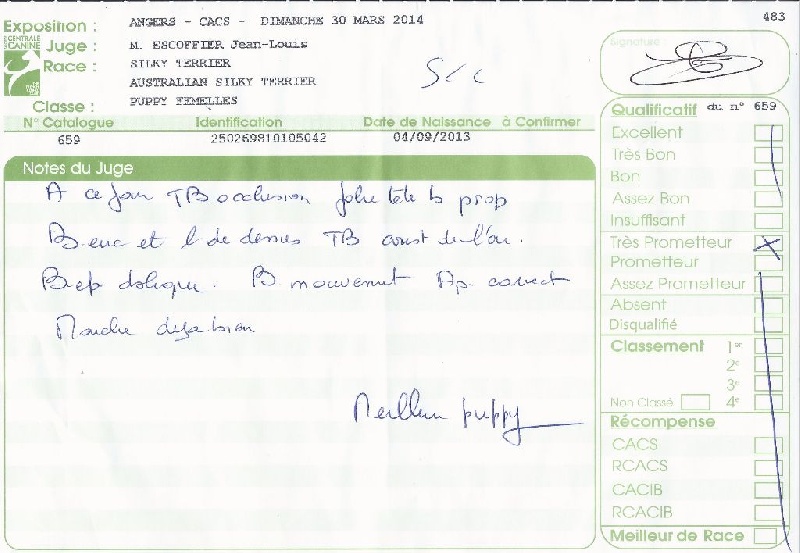 483
Exposition : ANGERS - CACS - DIMANCHE 30 MARS 2014
CENTRALE CANINE
Juge : M. ESCOFFIER Jean-Louis
Race : SILKY TERRIER
AUSTRALIAN SILKY TERRIER
Classe : PUPPY FEMELLES
N° Catalogue Identification Date de Naissance à Confirmer
659 250269810105042 04/09/2013
Notes du Juge
A ce jour TB occlusion jolie tête b prop
B enc et l de dessus TB const de l'
B ep dolique. B mouvement Ap correct
Marche déjà bien
Meilleur puppy
Signature
Qualificatif du n° 659
Excellent
Très Bon
Bon
Assez Bon
Insuffisant
Très Prometteur X
Prometteur
Assez Prometteur
Absent
Disqualifié
Classement 1er
2e
3e
Non Classé 4e
Récompense
CACS
RCACS
CACIB
RCACIB
Meilleur de Race